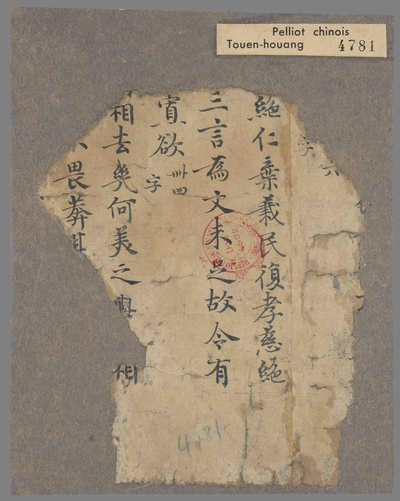 Pelliot chinois
Touen-houang 4781
字
絶仁棄義民復孝慈絶
三言為文未足故令有
寡欲 卌四字
相去幾何美之與 相
畏莽其
4781